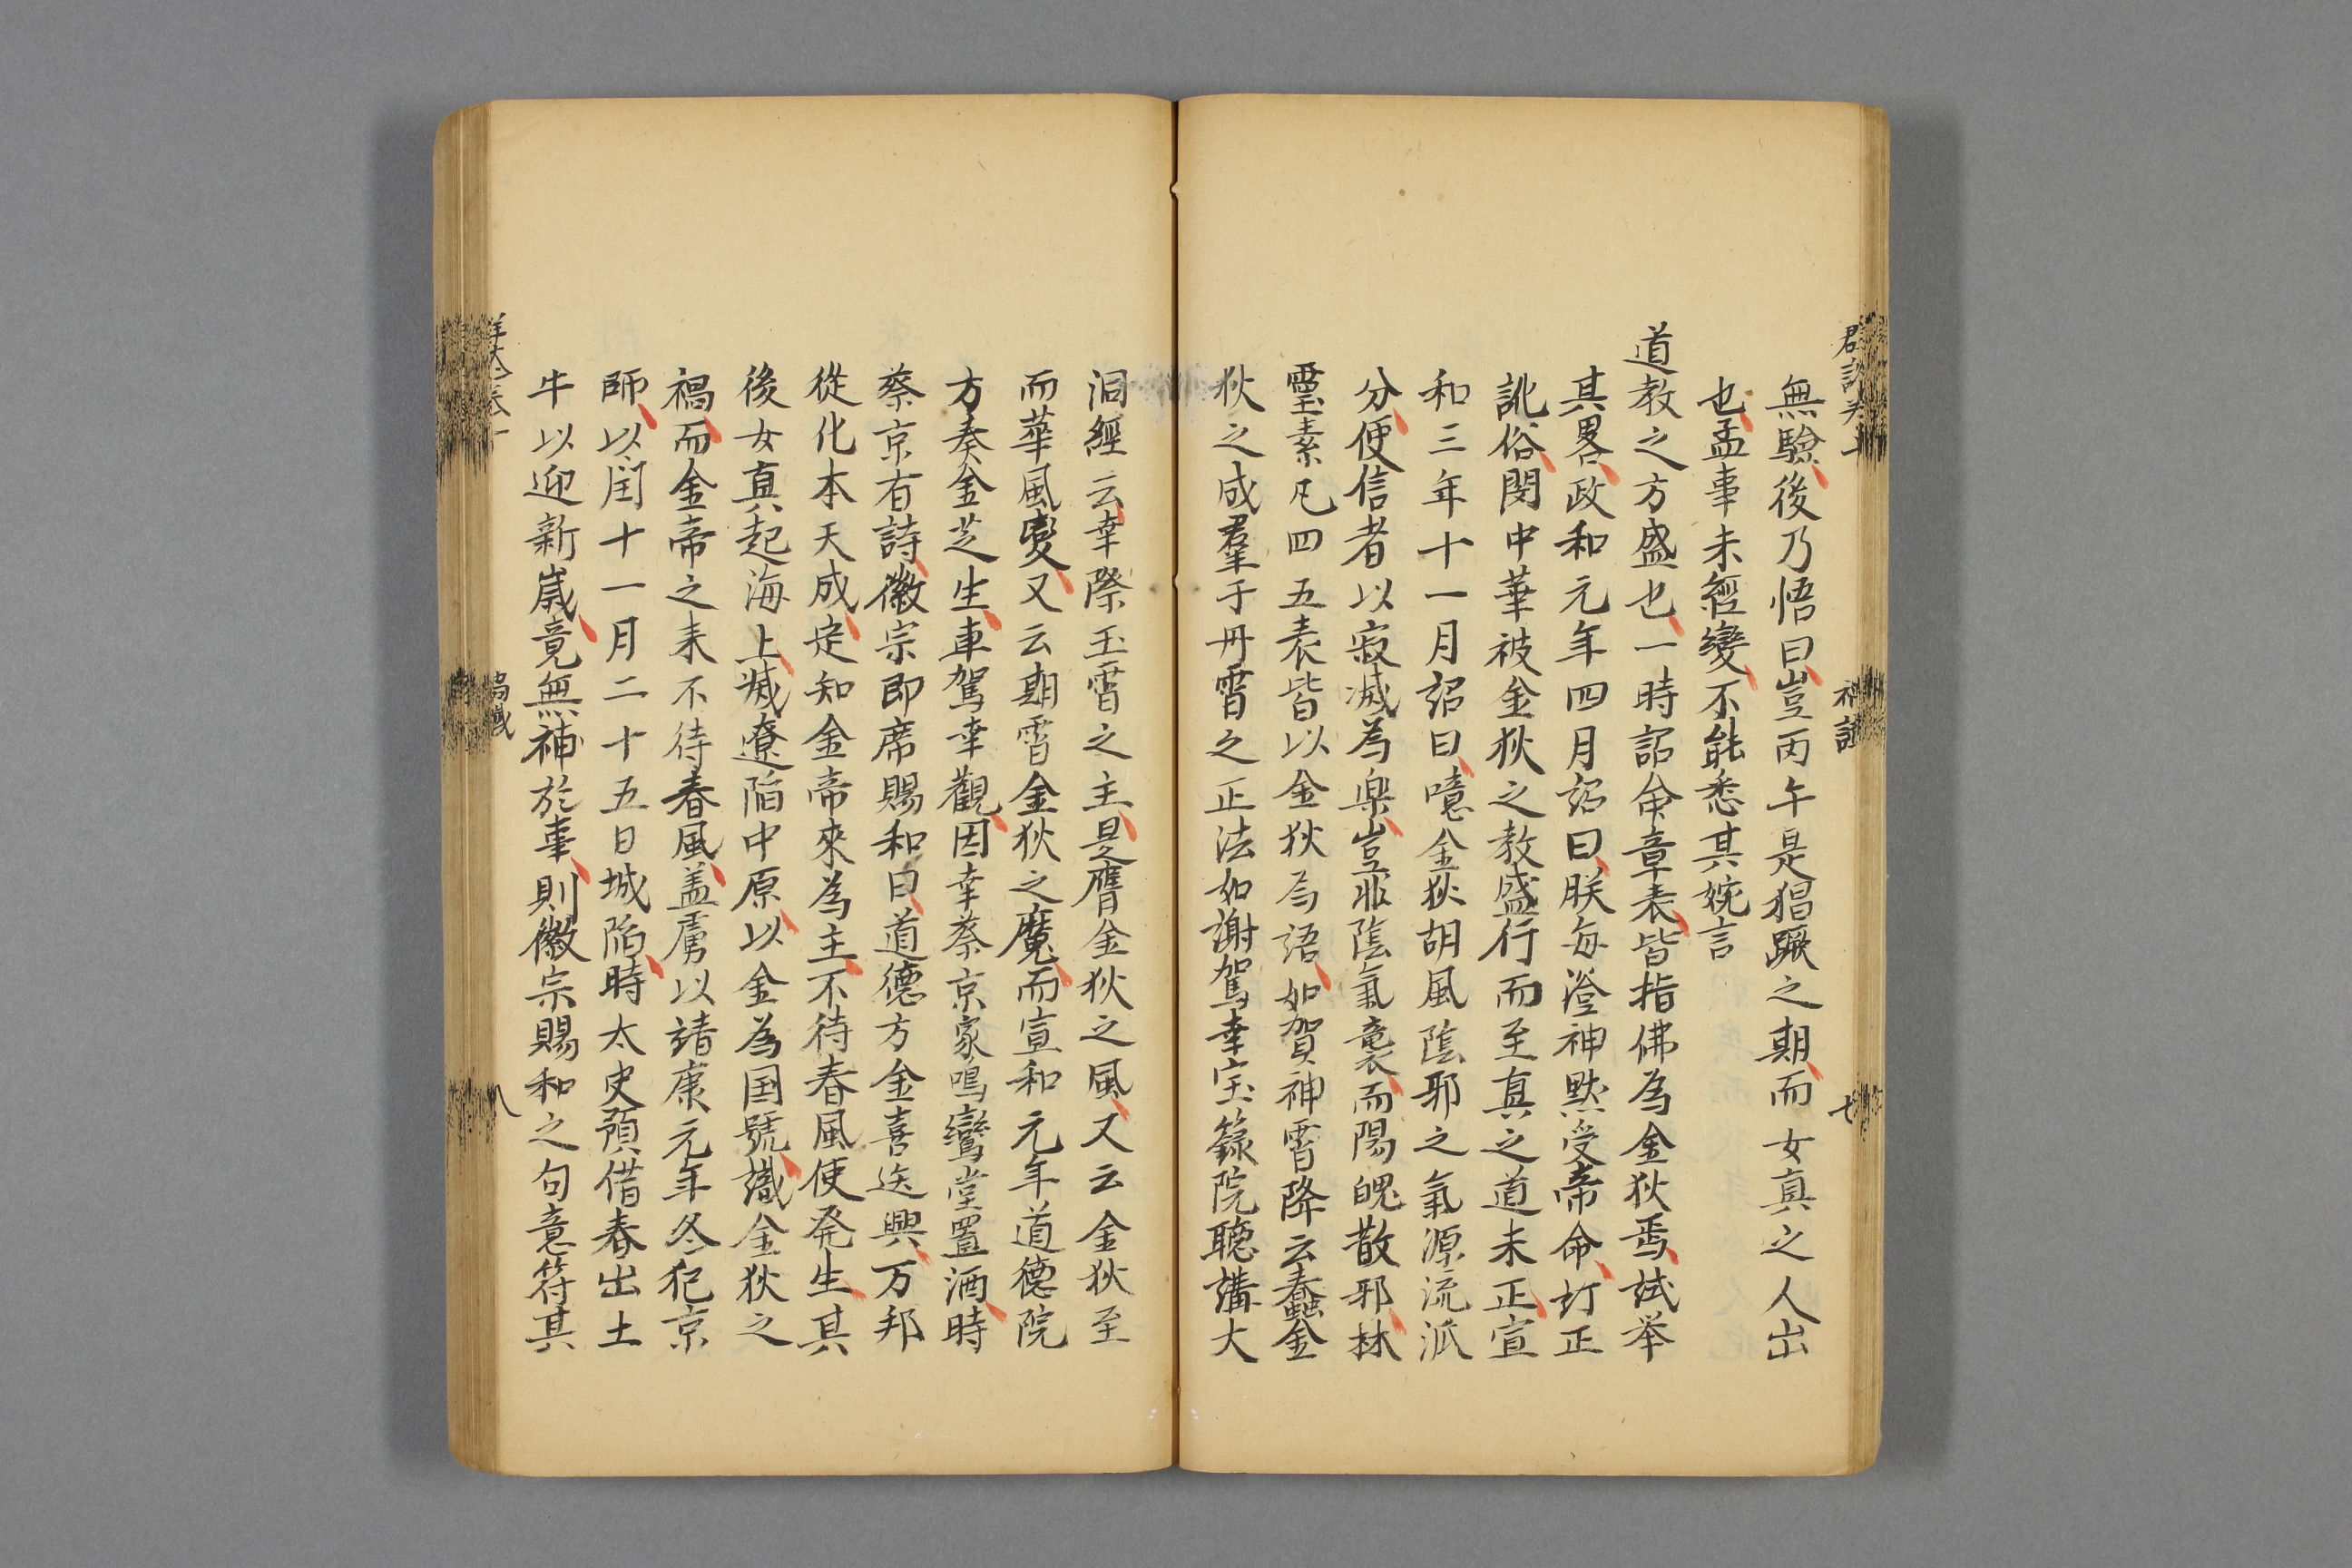 無驗後乃悟曰豈丙午是猖蹶之期而女真之人出
也孟事未經變不能悉其婉言
道教之方盛也一時詔命章表皆指佛為金狄焉試举
其畧政和元年四月詔曰朕每澄神黙受帝命訂正
訛俗閔中華被金狄之教盛行而至真之道未正宣
和三年十一月詔曰噫金狄胡風陰邪之氣源流派
分使信者以寂滅為楽豈非陰氣襲而陽魄散邪林
靈素凡四五表皆以金狄為語如賀神霄降云蠢金
狄之成羣于丹霄之正法如謝駕幸宝籙院聽講大
洞經云幸際玉霄之主是膺金狄之風又云金狄至
而華風變又云期霄金狄之魔而宣和元年道德院
方奏金芝生車駕幸觀因幸蔡京家鳴鸞堂置酒時
蔡京有詩徽宗即席賜和曰道德方金喜迭興万邦
從化本天成定知金帝來為主不待春風使発生其
後女真起海上滅遼陷中原以金為国號讖金狄之
禍而金帝之来不待春風盖虜以靖康元年冬犯京
師以闰十一月二十五日城陷時太史預借春出土
牛以迎新歳竟無神於事則徽宗賜和之句意符其
七
八